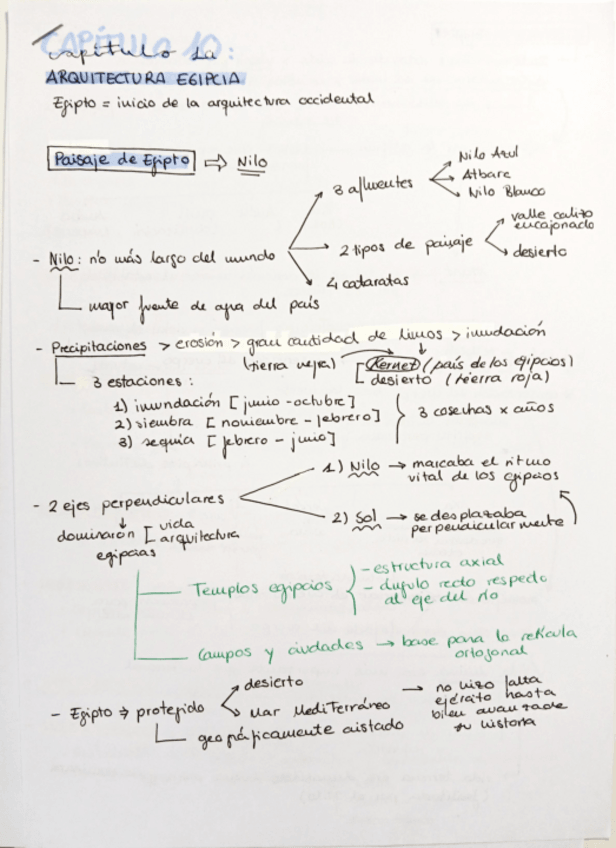 CAPÍTULO 10:
capítulo 1a
ARQUITECTURA EGIPCIA
Egipto = inicio de la arquitectura occidental
Paisaje de Egipto ⇒ Nilo
3 afluentes
Nilo Azul
Atbare
Nilo Blanco
- Nilo: río más largo del mundo
2 tipos de paisaje
valle calizo encajonado
desierto
4 cataratas
mayor fuente de agua del país
- Precipitaciones > erosión > gran cantidad de limos > inundación
(tierra negra) Kemet (país de los egipcios)
desierto (tierra roja)
3 estaciones:
1) inundación [junio - octubre]
2) siembra [noviembre - febrero]
3) sequía [febrero - junio]
3 cosechas x años
- 2 ejes perpendiculares
1) Nilo → marcaba el ritmo
vital de los egipcios
2) Sol → se desplazaba
perpendicularmente
dominaron [vida
arquitectura
egipcias
Templos egipcios
- estructura axial
- ángulo recto respecto
al eje del río
Campos y ciudades → base para la retícula
ortogonal
- Egipto → protegido
desierto
Mar Mediterráneo
geográficamente aislado
→ no hizo falta
ejército hasta
bien avanzada
su historia